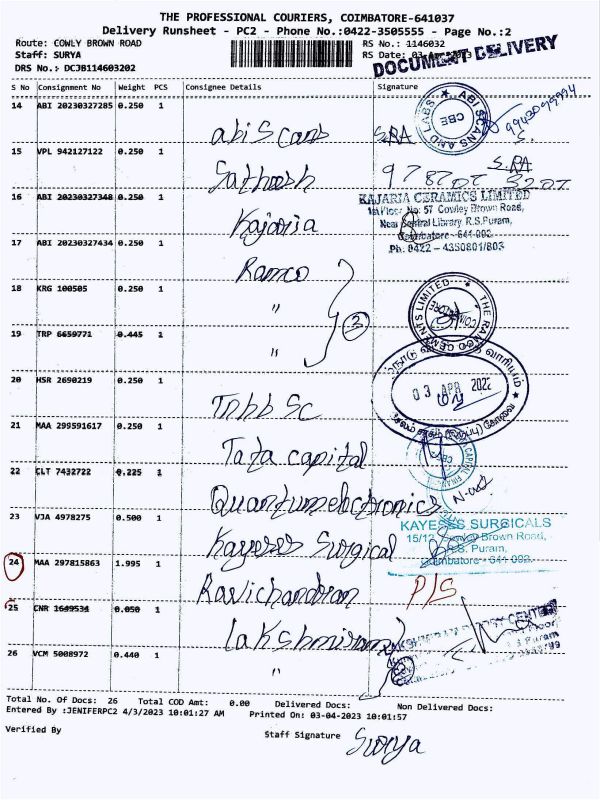 THE PROFESSIONAL COURIERS, COIMBATORE-641037
Delivery Runsheet - PC2 - Phone No.:0422-3505555 - Page No.:2
Route: COWLY BROWN ROAD RS No.: 1146032
Staff: SURYA RS Date: 03-Apr-2023
DOCUMENT DELIVERY
DRS No.: DCJB114603202
S No Consignment No Weight PCS Consignee Details Signature
14 ABI 20230327285 0.250 1
abi Scans SRA 9943099994
ABI SCANS AND LABS CBE
15 VPL 942127122 0.250 1
Satheesh S.RA
16 ABI 20230327348 0.250 1
KAJARIA CERAMICS LIMITED
Ist Floor, No: 57 Cowley Brown Road,
Near Central Library R.S.Puram,
Coimbatore - 641 002.
Ph: 0422 - 4350801/803
Kajaria
17 ABI 20230327434 0.250 1
Ramco
18 KRG 100505 0.250 1
" 3
THE RAMCO CEMENTS LIMITED COIMBATORE
19 TRP 6659771 0.445 1
"
20 HSR 2690219 0.250 1
03 APR 2022
Tnhb Sc
21 MAA 299591617 0.250 1
Tata capital
22 CLT 7432722 0.225 1
Quantum electronics
23 VJA 4978275 0.500 1
KAYESES SURGICALS
15/12, Cowley Brown Road,
R.S. Puram,
Coimbatore - 641 002.
Kayeses Surgical
24 MAA 297815863 1.995 1
Ravichandran P/S
25 CNR 1649534 0.050 1
Lakshmiram
26 VCM 5008972 0.440 1
"
Total No. Of Docs: 26 Total COD Amt: 0.00 Delivered Docs: Non Delivered Docs:
Entered By :JENIFERPC2 4/3/2023 10:01:27 AM Printed On: 03-04-2023 10:01:57
Verified By Staff Signature Surya